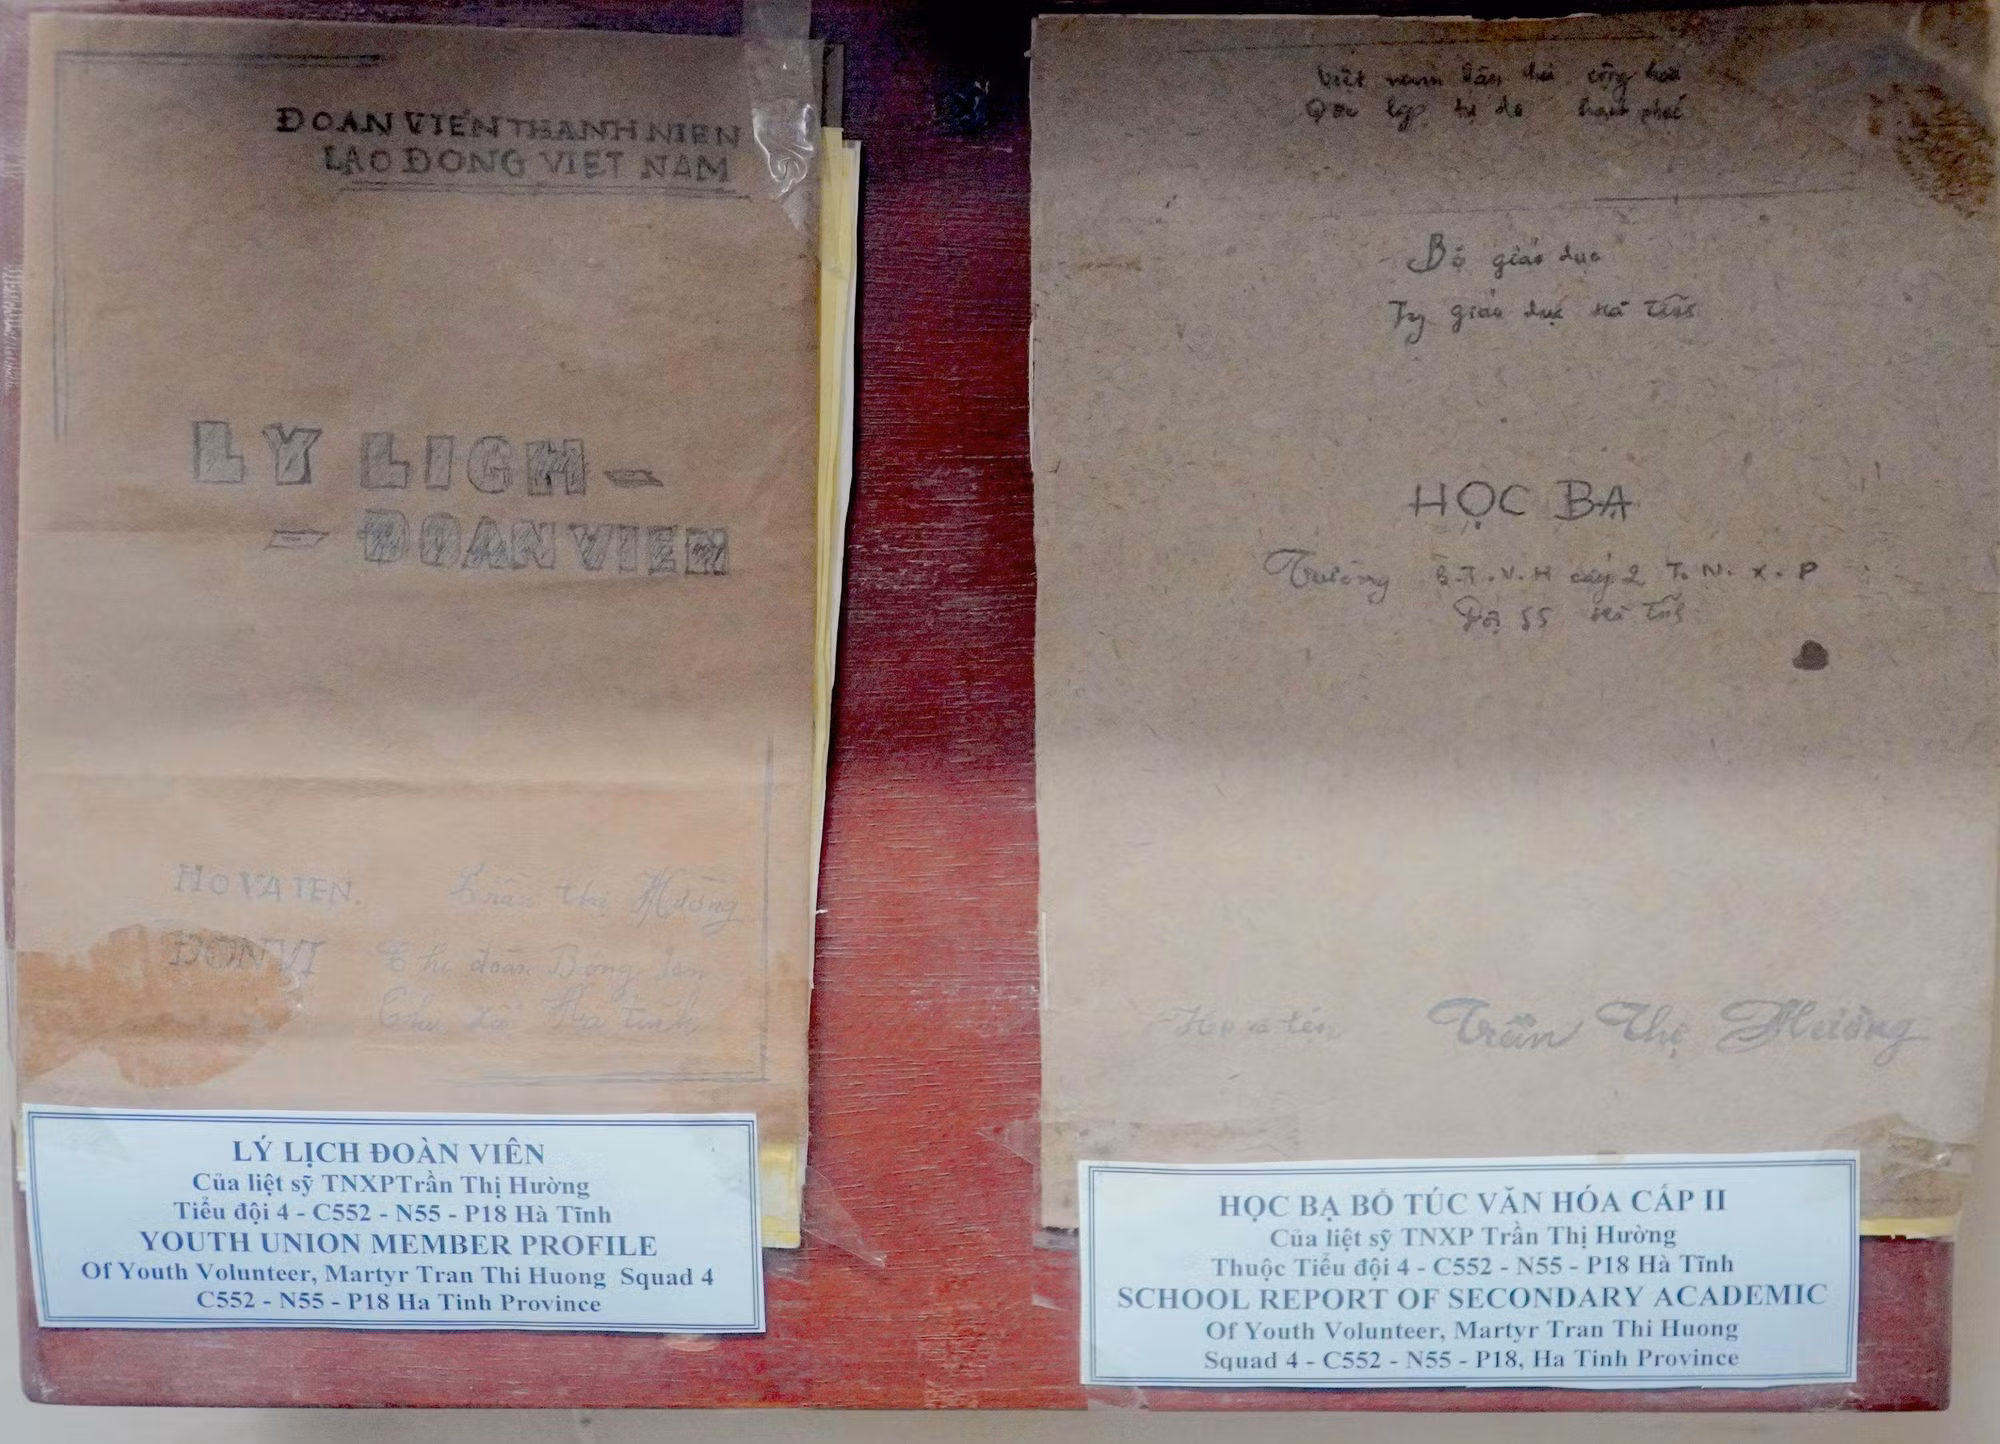 ĐOAN VIÊN THANH NIEN
LAO ĐONG VIET NAM
LY LICH -
- ĐOAN VIEN
HO VA TEN. Trần thị Hường
ĐƠN VI Chi đoàn Bông Sen
Thị xã Hà tĩnh
LÝ LỊCH ĐOÀN VIÊN
Của liệt sỹ TNXPTrần Thị Hường
Tiểu đội 4 - C552 - N55 - P18 Hà Tĩnh
YOUTH UNION MEMBER PROFILE
Of Youth Volunteer, Martyr Tran Thi Huong Squad 4
C552 - N55 - P18 Ha Tinh Province
Việt nam dân chủ cộng hoà
Độc lập tự do hạnh phúc
Bộ giáo dục
Ty giáo dục Hà Tĩnh
HỌC BẠ
Trường B.T.V.H cấp 2 T.N.X.P
Đội 55 Hà Tĩnh
Họ và tên Trần Thị Hường
HỌC BẠ BỔ TÚC VĂN HÓA CẤP II
Của liệt sỹ TNXP Trần Thị Hường
Thuộc Tiểu đội 4 - C552 - N55 - P18 Hà Tĩnh
SCHOOL REPORT OF SECONDARY ACADEMIC
Of Youth Volunteer, Martyr Tran Thi Huong
Squad 4 - C552 - N55 - P18, Ha Tinh Province